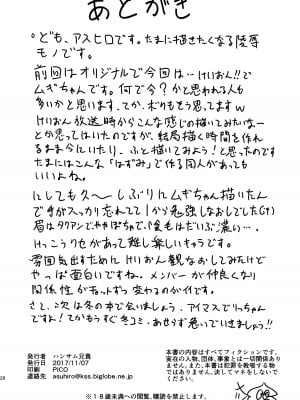 あとがき
ども、アスヒロです。たまに描きたくなる陵辱
モノです。
前回はオリジナルで今回は…けいおん!!で
ムギちゃんです。何で今?かと思われる人も
多いかと思います、てか、ボクもそう思ってますw
けいおん放送時からこんな感じの描いてみたいなー
とか思ってはいたのですが、結局描く時間を作れ
るまま今にいたり、ふと描いてみよう!と思ったのです
たまにはこんな「はずみ」で作る同人があっても
いいよね。
にしても久〜しぶりにムギちゃん描いたん
ですがスッカリ忘れてて1から勉強しなおしでした
眉はタクアンでややぽちゃで、髪もはだいぶ濃い…
けっこうクセがあって難し楽しいキャラです。
雰囲気出すためにけいおん観なおしてみたけど
やっぱ面白いですね。メンバーが仲良くなり
関係性がキュッって変わるのが
さて、次は冬の本で会いましょう、アイマスでりっちゃん
ですよ!てかもうすぐ冬コミ、あせらず急いでいきましょう!!
発行者 ハンサム兄貴
発行日 2017/11/07
印刷 PICO
連絡先 asuhiro@kss.biglobe.ne.jp
本書の内容はすべてフィクションです。
実在の人物、団体、事象とは一切関係あり
ません。また、本書は犯罪を教唆する物
ではありません、決してマネをしないで
ください。
28
※18歳未満への閲覧、購読を禁止します